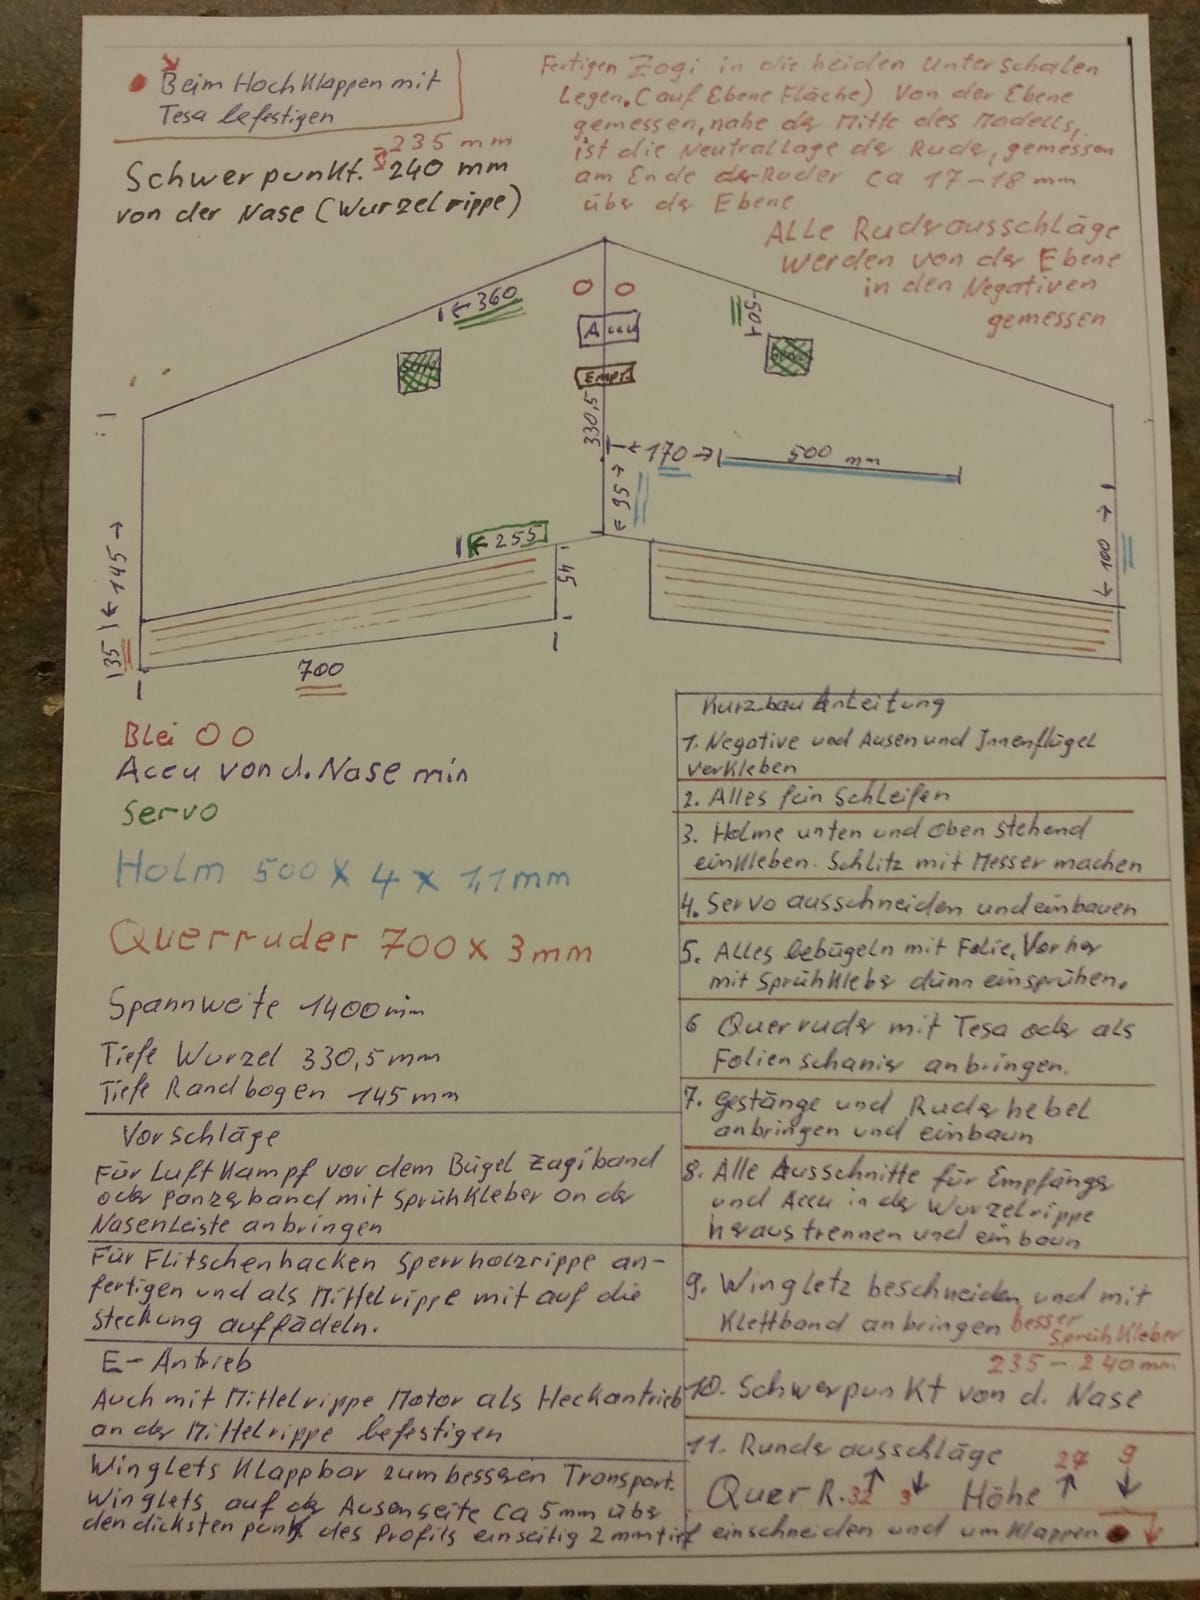 Beim Hochklappen mit
Tesa befestigen
235 mm
Schwerpunkt. 240 mm
von der Nase (Wurzelrippe)
Fertigen Zagi in die beiden Unterschalen
Legen. (auf Ebene Fläche) Von der Ebene
gemessen, nahe der Mitte des Modells,
ist die Neutrallage der Ruder, gemessen
am Ende der Ruder ca 17-18 mm
über der Ebene
ALLE Ruderausschläge
werden von der Ebene
in den Negativen
gemessen
360
50
Accu
Empf.
330,5
170
500 mm
95
255
45
145
35
100
700
Blei O O
Accu von d. Nase min
Servo
Holm 500 x 4 x 1,1 mm
Querruder 700 x 3 mm
Spannweite 1400 mm
Tiefe Wurzel 330,5 mm
Tiefe Randbogen 145 mm
Vorschläge
Für Luftkampf vor dem Bügel Zagiband
oder Panzerband mit Sprühkleber an der
Nasenleiste anbringen
Für Flitschenhacken Sperrholzrippe an-
fertigen und als Mittelrippe mit auf die
Steckung auffädeln.
E-Antrieb
Auch mit Mittelrippe Motor als Heckantrieb
an der Mittelrippe befestigen
Winglets Klappbar zum besseren Transport.
Winglets auf der Ausenseite ca 5 mm über
den dicksten punkt des Profils einseitig 2 mm tief einschneiden und umklappen
Kurzbau Anleitung
1. Negative und Ausen und Innenflügel
verkleben
2. Alles fein Schleifen
3. Holme unten und oben stehend
einkleben. Schlitz mit Messer machen
4. Servo ausschneiden und einbauen
5. Alles bebügeln mit Folie. Vorher
mit Sprühkleber dünn einsprühen.
6 Querruder mit Tesa oder als
Folienschanier anbringen.
7. Gestänge und Ruderhebel
anbringen und einbaun
8. Alle Ausschnitte für Empfänger
und Accu in der Wurzelrippe
heraustrennen und einbaun
9. Wingletz beschneiden und mit
Klettband anbringen besser
Sprühkleber
235 - 240 mm
10. Schwerpunkt von d. Nase
11. Runderausschläge
Quer R. 32 ↑ 3 ↓ Höhe 27 ↑ 9 ↓